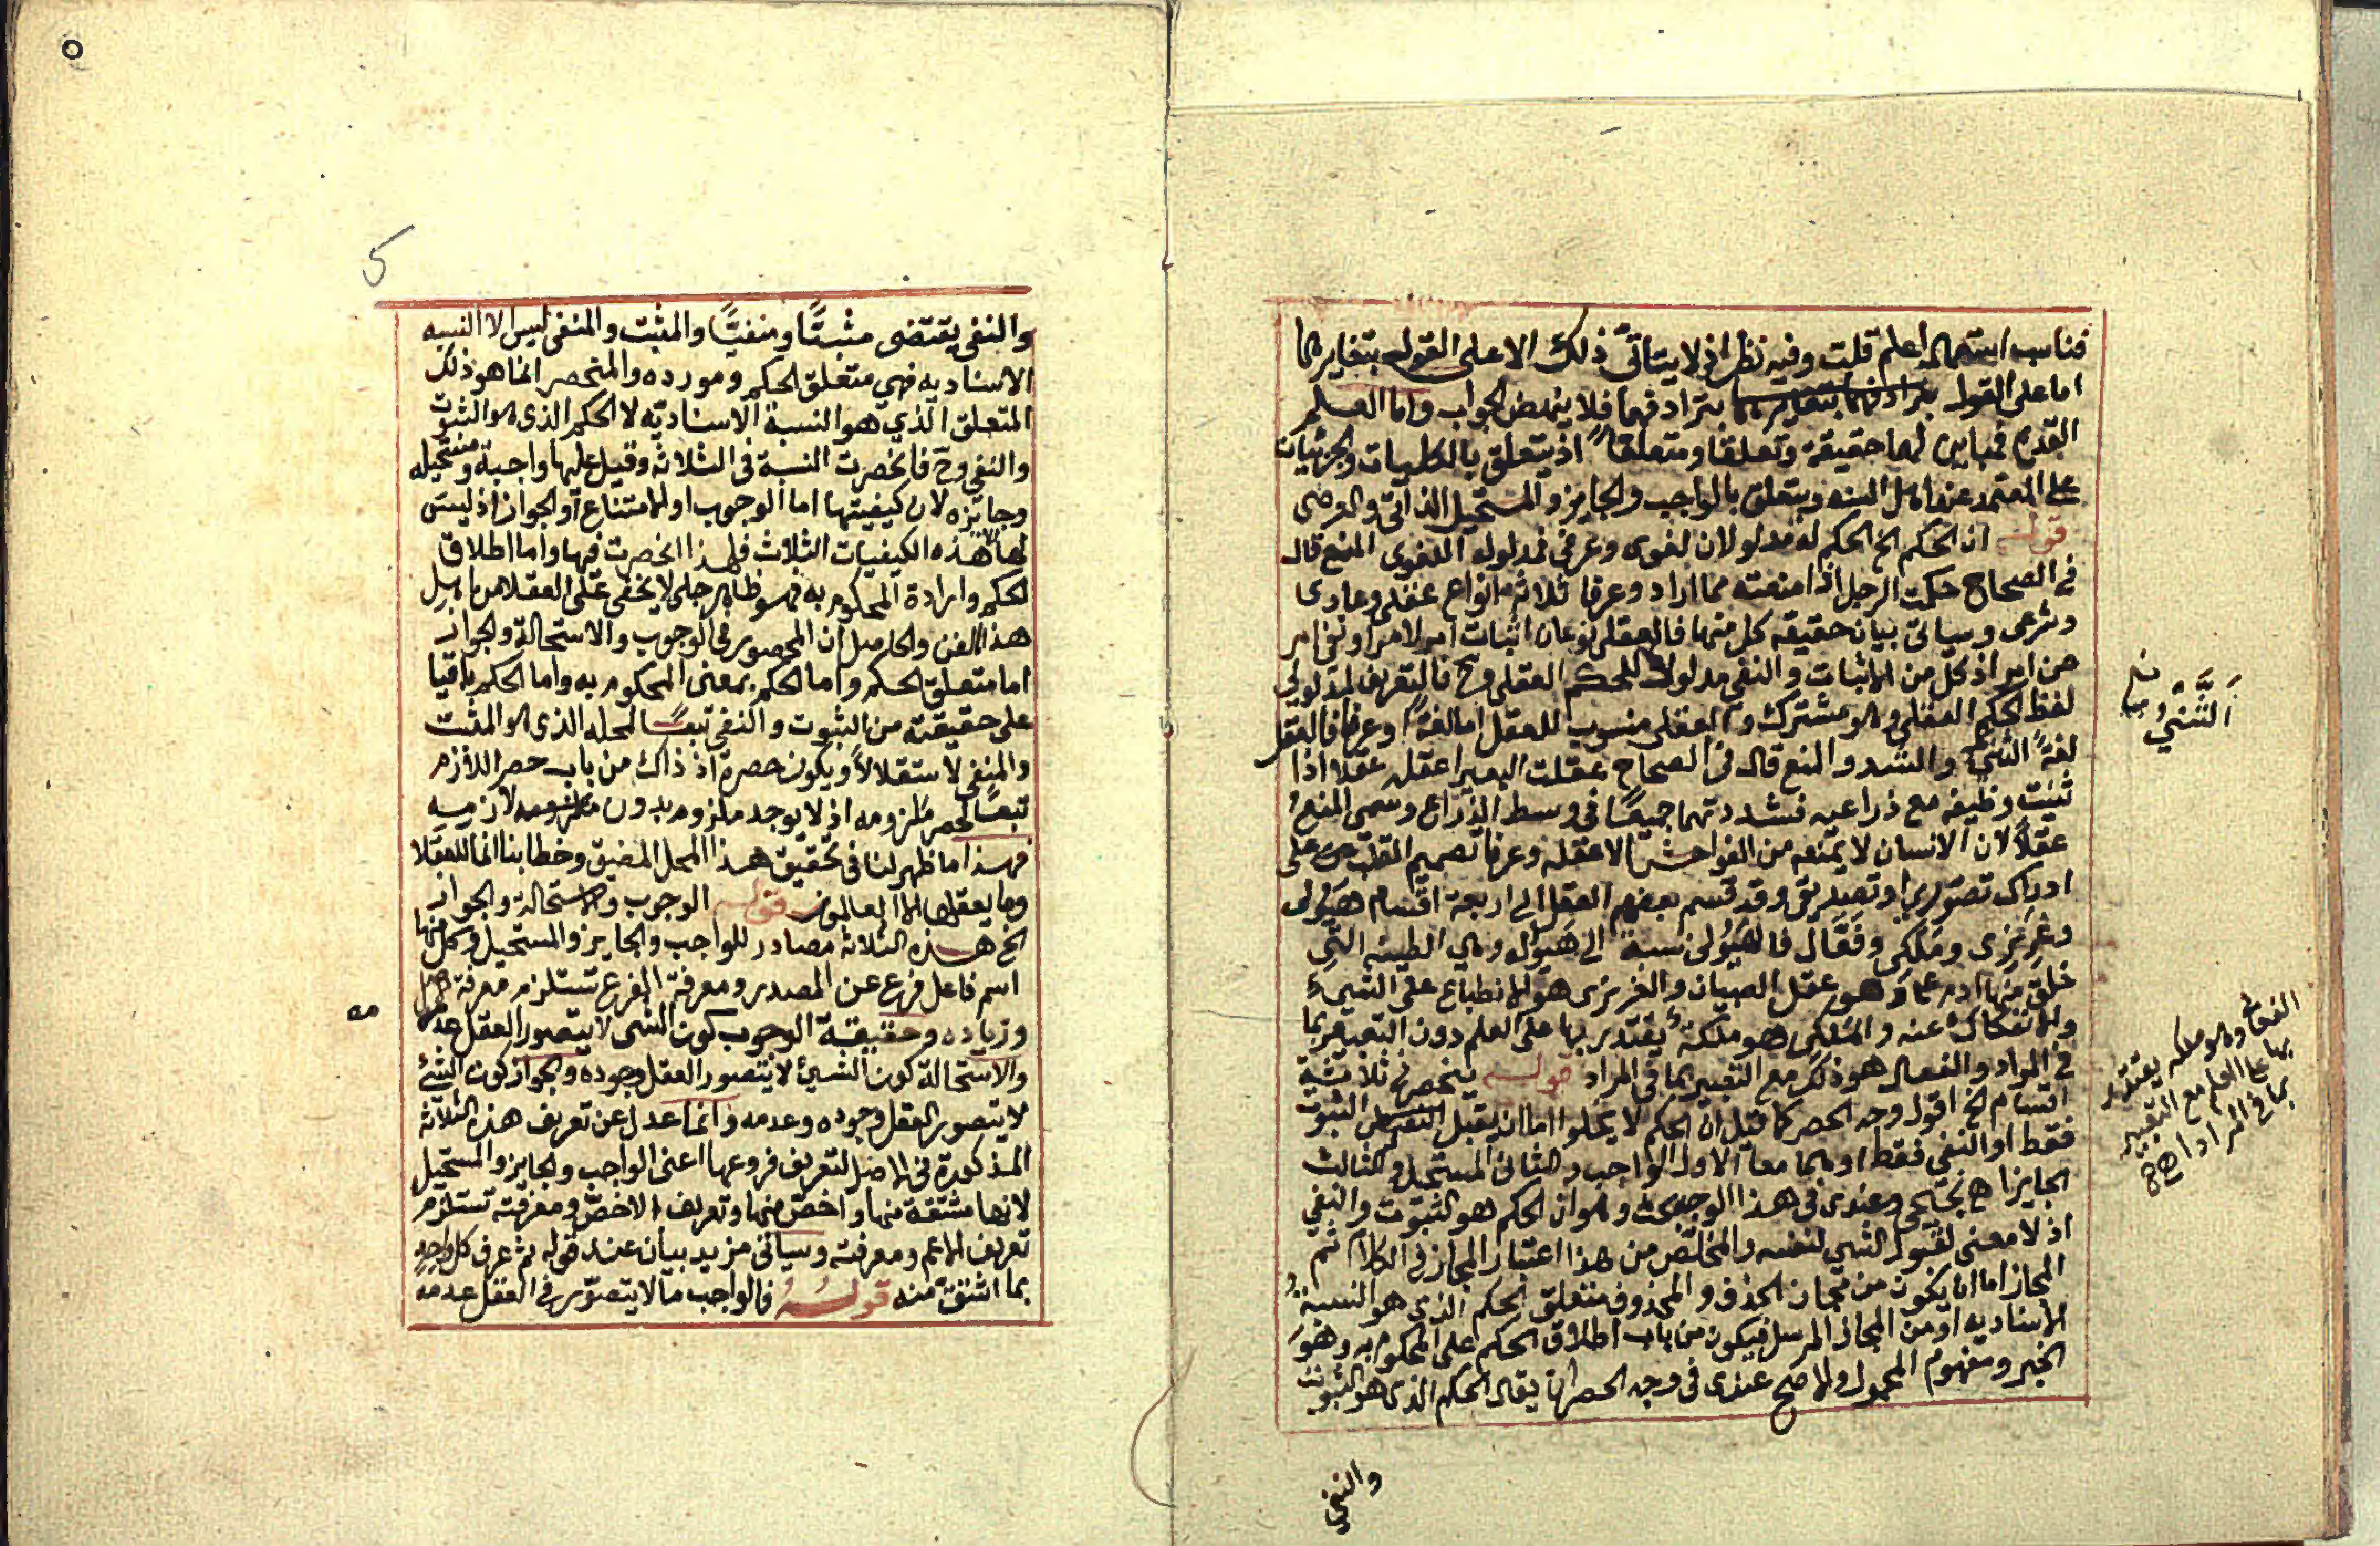 فناسب استعماله اعلم قلت وفيه نظر اذ لا يتاتى ذلك الا على القول بتغايرهما
اما على القول بترادفهما فلا ينهض الجواب واما العلم
القديم فمباين لها حقيقة وتعلقا ومتعلقا اذ يتعلق بالكليات والجزئيات
على المعتمد عند اهل السنه ويتعلق بالواجب والجايز والمستحيل الذاتى والعرضى
قوله ان الحكم الخ الحكم له مدلولان لغوى وعرفى فمدلوله اللغوى المنع قال
فى الصحاح حكمت الرجل اذا منعته مما اراد وعرفا ثلاثة انواع عقلى وعادى
وشرعى وسياتى بيان حقيقة كل منها فالعقلى نوعان اثبات امر لامر او نفى امر
عن امر اذ كل من الاثبات والنفى مدلول للحكم العقلى وح فالتعريف لمدلولى
لفظ الحكم العقلى وهو مشترك والعقلى منسوب للعقل اما لغة وعرفا فالعقل
لغةً الثنى والشد والمنع قال فى الصحاح عقلت البعير اعقله عقلا اذا
ثنيت وظيفه مع ذراعيه فشددتهما جميعًا فى وسط الذراع وسمى المنع
عقلًا لان الانسان لا يمنعه من الفواحش الا عقله وعرفا تصميم القلب على
ادراك تصورى او تصديقى وقد قسم بعضهم العقل الى اربعة اقسام هَيُولى
وغريزى ومَلَكى وفَعَّال فالهَيُولى نسبة الى هَيُول وهى الطينه التى
خلق منها ادم عم وهو عقل الصبيان والغريزى هو الانطباع على الشىء
والانفكاك عنه والملكى هو ملكة يقتدر بها على العلم دون التعبير بما
فى المراد والفعال هو ذلك مع التعبير بما فى المراد قوله ينحصر فى ثلاثة
اقسام الخ اقول وجه الحصر كما قيل ان الحكم لا يخلوا اما ان يقبل الثبوت
فقط او النفى فقط او هما معا الاول الواجب والثانى المستحيل والثالث
الجايز اهـ وعندى فى هذا الوجه بحث وهو ان الحكم هو الثبوت والنفى
اذ لا معنى لقبول الشى لنفسه والمخلص من هذا اعتبار المجاز فى الكلام ثم
المجاز اما ان يكون من مجاز الحذف والمحذوف متعلق الحكم الذى هو النسبة
الاسناديه او من المجاز المرسل فيكون من باب اطلاق الحكم على المحكوم به وهو
الخبر ومفهوم المحمول والاصح عندى فى وجه الحصر ان يقال الحكم الذى هو الثبوت
والنفى
الثَّنْىُ
الفعال وهو ملكه يقتدر
بها على العلم مع التعبير
بما فى المراد اهـ
5
والنفى يقتضى مثبتًا ومنفيًّا والمثبت والمنفى ليس الا النسبه
الاسناديه فهى متعلق الحكم ومورده والمنحصر انما هو ذلك
المتعلق الذى هو النسبة الاسناديّه لا الحكم الذى هو الثبوت
والنفى وح فانحصرت النسبة فى الثلاثة وقيل عليها واجبة ومستحيله
وجايزه لان كيفيتها اما الوجوب او الامتناع او الجواز اذ ليس
لها الا هذه الكيفيات الثلاث فلهذا انحصرت فيها واما اطلاق
الحكم وارادة المحكوم به فهو ظاهر جلى لا يخفى على العقلا من اهل
هذا الفن والحاصل ان المحصور فى الوجوب والاستحالة والجواز
اما متعلق الحكم واما الحكم بمعنى المحكوم به واما الحكم باقيا
على حقيقته من الثبوت والنفى تبعًا لمحله الذى هو المثبت
والمنفى لا ستقلالاً ويكون حصره اذ ذاك من باب حصر اللازم
تبعًا لحصر ملزومه اذ لا يوجد ملزوم بدون لازمه
فهذا ما ظهر لنا فى تحقيق هذا المحل المضيق وخطابنا انما للعقلا
وما يعقلها الا العالمون قوله الوجوب والاستحالة والجواز
الخ هذه الثلاثة مصادر للواجب والجايز والمستحيل وكل منها
اسم فاعل فرع عن المصدر ومعرفة الفرع تستلزم معرفة اصل
وزياده وحقيقة الوجوب كون الشى لا يتصور العقل عدمه
والاستحالة كون الشىء لا يتصور العقل وجوده والجواز كون الشئ
لا يتصور العقل وجوده وعدمه وانما عدل عن تعريف هذه الثلاثة
المذكورة فى الاصل لتعريف فروعها اعنى الواجب والجايز والمستحيل
لانها مشتقة منها واخصّ منها وتعريف الاخص ومعرفته تستلزم
تعريف الاعم ومعرفته وسياتى مزيد بيان عند قوله ثم عرف كل واحدٍ
بما اشتق منه قوله فالواجب ما لا يتصوّر فى العقل عدمه
مه
٥